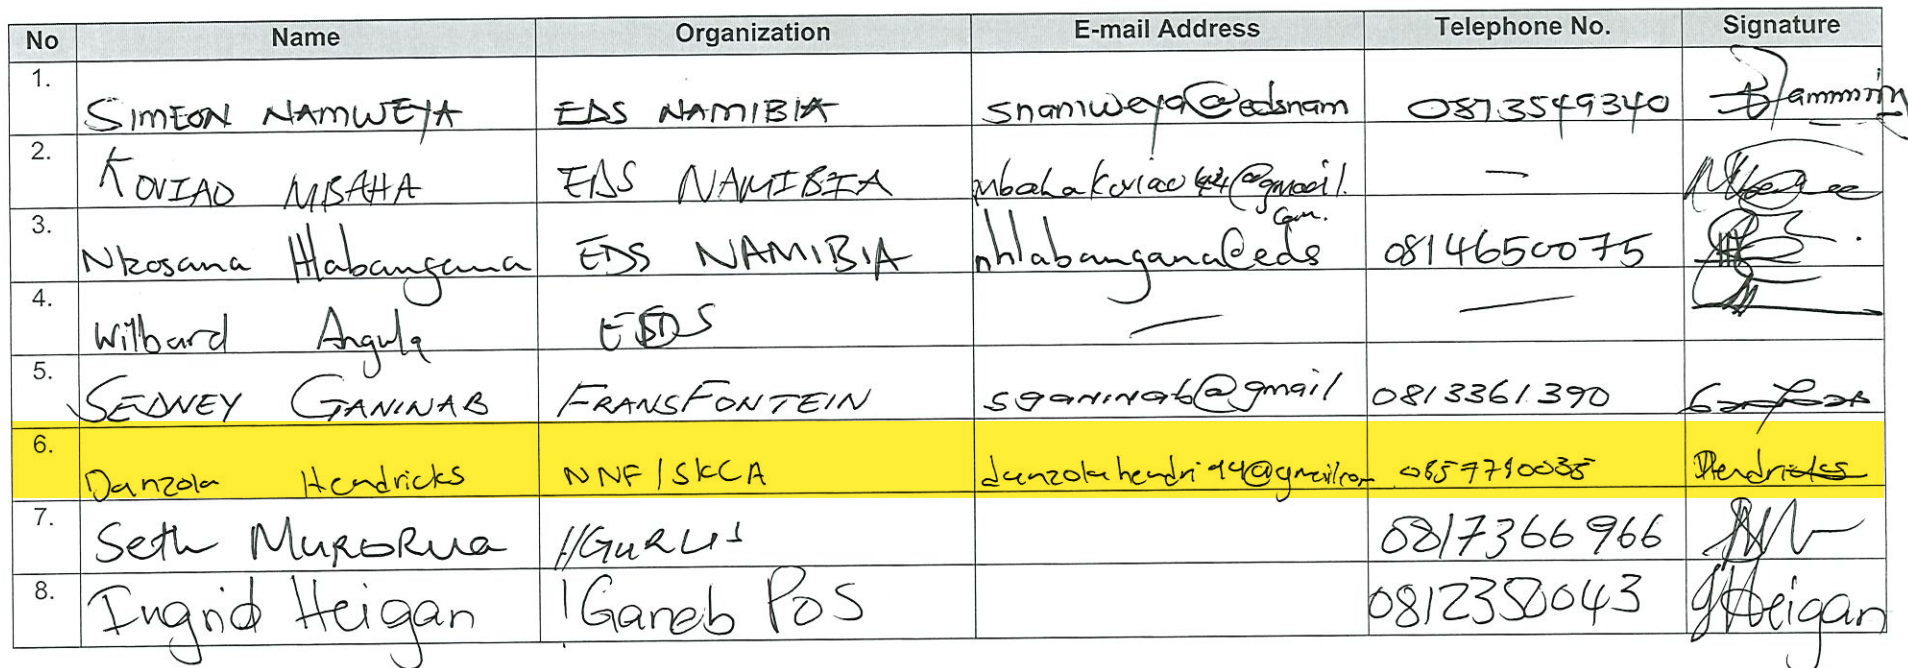 No Name Organization E-mail Address Telephone No. Signature
1. SIMEON NAMWEYA EDS NAMIBIA snamweya@edsnam 0813549340
2. KOVIAO MBAHA EDS NAMIBIA mbahakoviao44@gmail.
com.
3. Nkosana Hlabangana EDS NAMIBIA nhlabangana@eds 0814650075
4. Wilbard Angula EDS
5. SEDNEY GANINAB FRANSFONTEIN sganinab@gmail 0813361390
6. Danzola Hendricks NNF / SKCA danzolahendri94@gmail.com 0857790035 Hendricks
7. Seth MuroRua //GuRUS 0817366966
8. Ingrid Heigan !Ganeb Pos 0812350043 Heigan